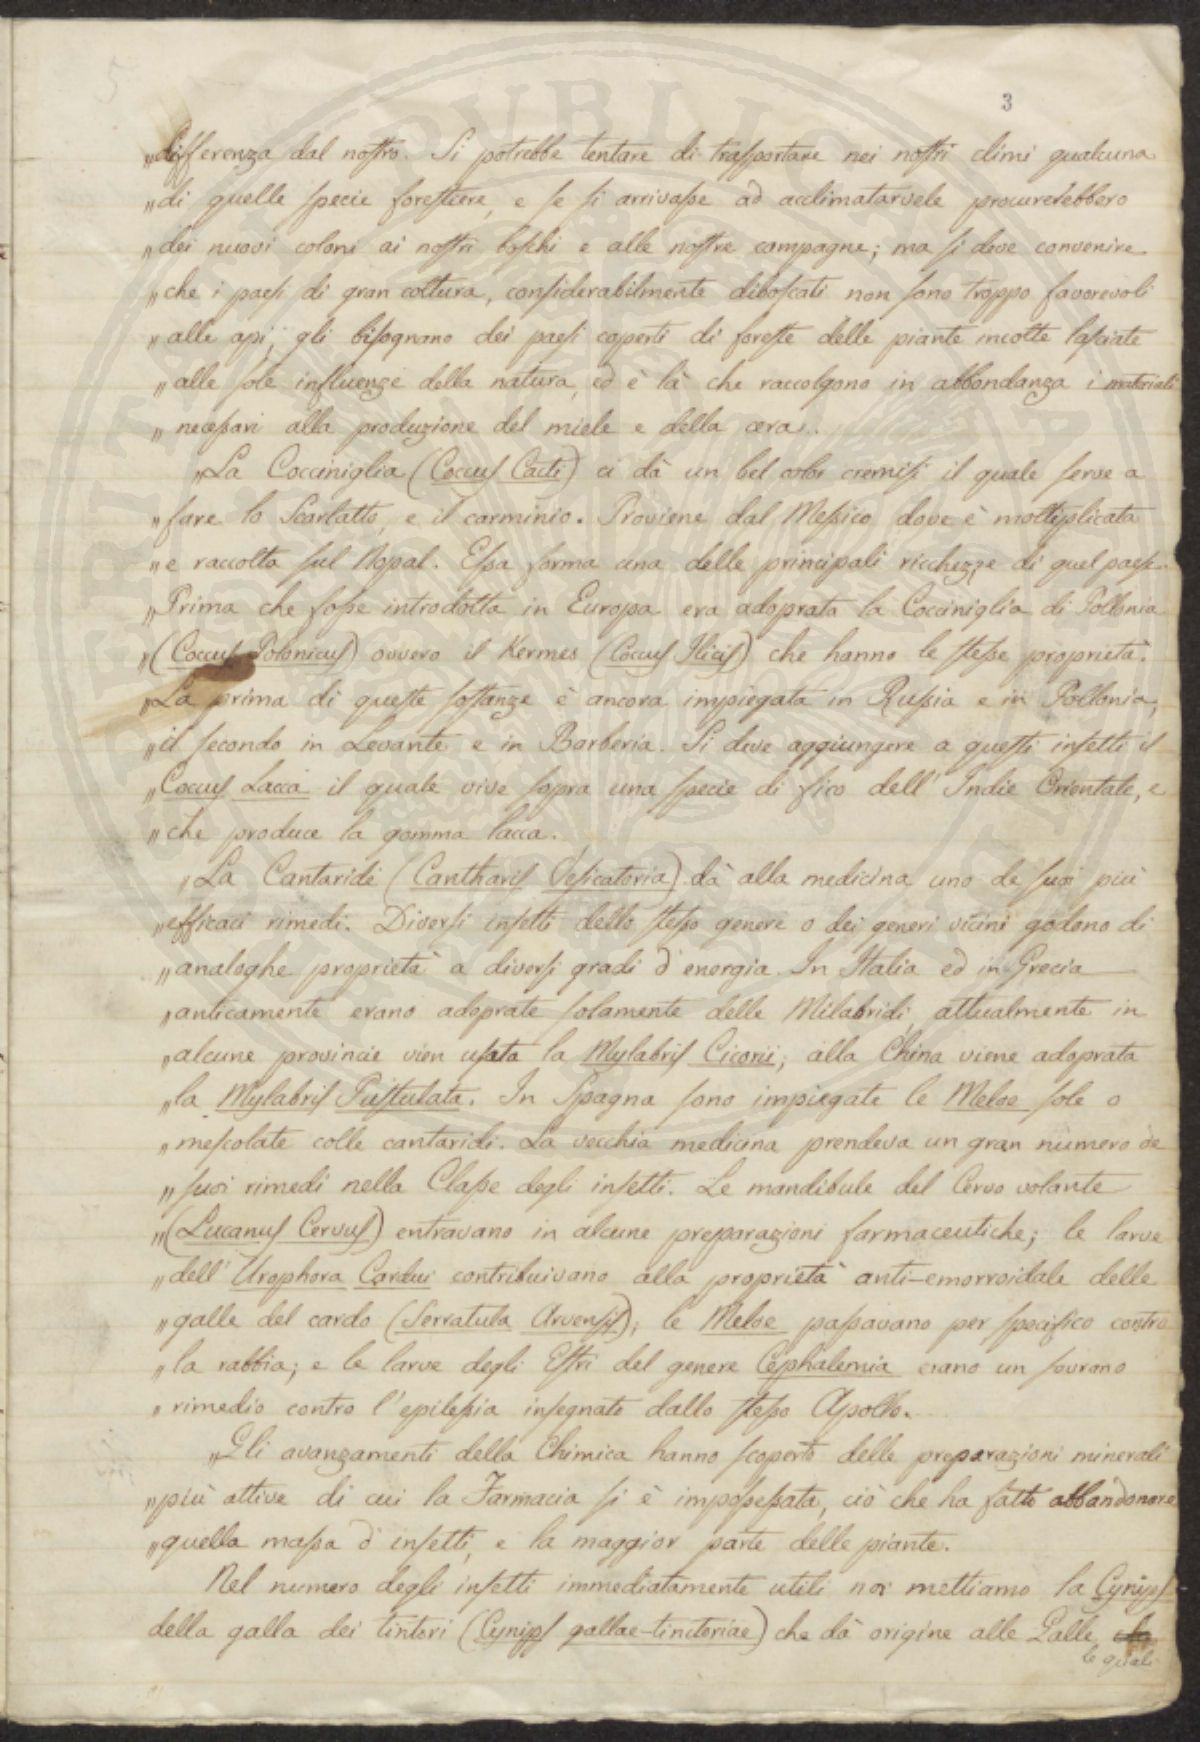 5
3
„differenza dal nostro. Si potrebbe tentare di trasportare nei nostri climi qualcuna
„di quelle specie forestiere, e se si arrivasse ad acclimatarvele procurerebbero
„dei nuovi coloni ai nostri boschi e alle nostre campagne; ma si deve convenire
„che i paesi di gran coltura, considerabilmente diboscati non sono troppo favorevoli
„alle api, gli bisognano dei paesi coperti di foreste delle piante incolte lasciate
„alle sole influenze della natura, ed è là che raccolgono in abbondanza i materiali
„necessari alla produzione del miele e della cera.
„La Cocciniglia (Coccus Cacti) ci dà un bel color cremisi il quale serve a
„fare lo Scarlatto, e il carminio. Proviene dal Messico dove è moltiplicata
„e raccolta sul Nopal. Essa forma una delle principali ricchezze di quel paese.
„Prima che fosse introdotta in Europa era adoprata la Cocciniglia di Pollonia
„(Coccus Polonicus) ovvero il Kermes (Coccus Ilicis) che hanno le stesse proprietà.
„La prima di queste sostanze è ancora impiegata in Russia e in Pollonia,
„il secondo in Levante e in Barberia. Si deve aggiungere a questi insetti il
„Coccus Lacca il quale vive sopra una specie di fico dell' Indie Orientale, e
„che produce la gomma lacca.
„La Cantaride (Cantharis Vesicatoria) dà alla medicina uno de suoi più
„efficaci rimedi. Diversi insetti dello stesso genere o dei generi vicini godono di
„analoghe proprietà a diversi gradi d'energia. In Italia ed in Grecia
„anticamente erano adoprate solamente delle Milabridi, attualmente in
„alcune provincie vien usata la Mylabris Cicorii; alla China viene adoprata
„la Mylabris Pustulata. In Spagna sono impiegate le Meloe sole o
„mescolate colle cantaridi. La vecchia medicina prendeva un gran numero de
„suoi rimedi nella Classe degli insetti. Le mandibule del Cervo volante
„(Lucanus Cervus) entravano in alcune preparazioni farmaceutiche; le larve
„dell' Urophora Cardui contribuivano alla proprietà anti-emorroidale delle
„galle del cardo (Serratula Arvensis); le Meloe passavano per specifico contro
„la rabbia; e le larve degli Estri del genere Cephalemia erano un sovrano
„rimedio contro l'epilessia insegnato dallo stesso Apollo.
„Gli avanzamenti della Chimica hanno scoperto delle preparazioni minerali
„più attive di cui la Farmacia si è impossessata, ciò che ha fatto abbandonare
„quella massa d'insetti, e la maggior parte delle piante.
Nel numero degli insetti immediatamente utili noi mettiamo la Cynips
della galla dei tintori (Cynips gallae-tinctoriae) che dà origine alle Galle
le quali